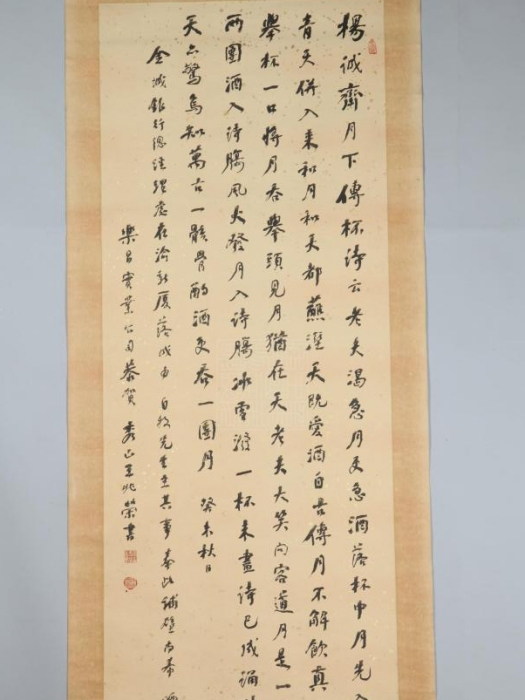 楊誠齋月下傳杯詩云老夫渴急月更急酒落杯中月先入
青天併入來和月和天都蘸溼天既愛酒自古傳月不解飲真
舉杯一口將月吞舉頭見月猶在天老夫大笑問客道月是一
兩團酒入詩腸風火發月入詩腸冰雪潑一杯未盡詩已成誦
天亦驚焉知萬古一骸骨酌酒更吞一團月 癸未秋日
金城銀行總經理處在渝新廈落成由 先生主其事
樂昌實業公司恭賀 秀山王兆榮書